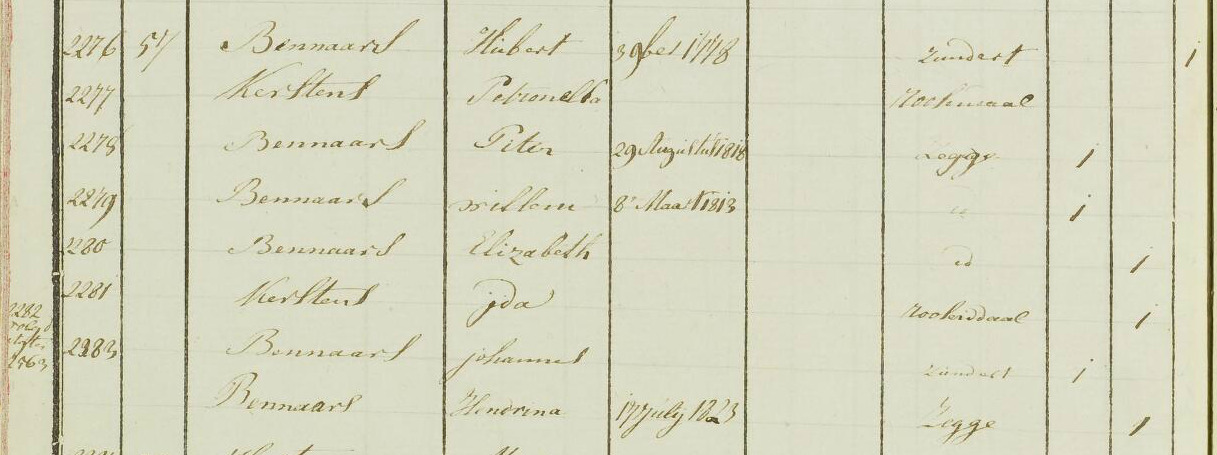 2276 57 Bennaars Hubert 3 9ber 1778 Zundert 1
2277 Kerstens Petronella
2278 Bennaars Peter 29 Augustus 1818 Zegge 1
2279 Bennaars willem 8 Maart 1813 id 1
280 Bennaars Elizabeth id 1
2281 Kerstens jda 1
2282
2283 Bennaars johannes Zundert 1
2563
Bennaars Hendrina 17 july 1823 Zegge 1